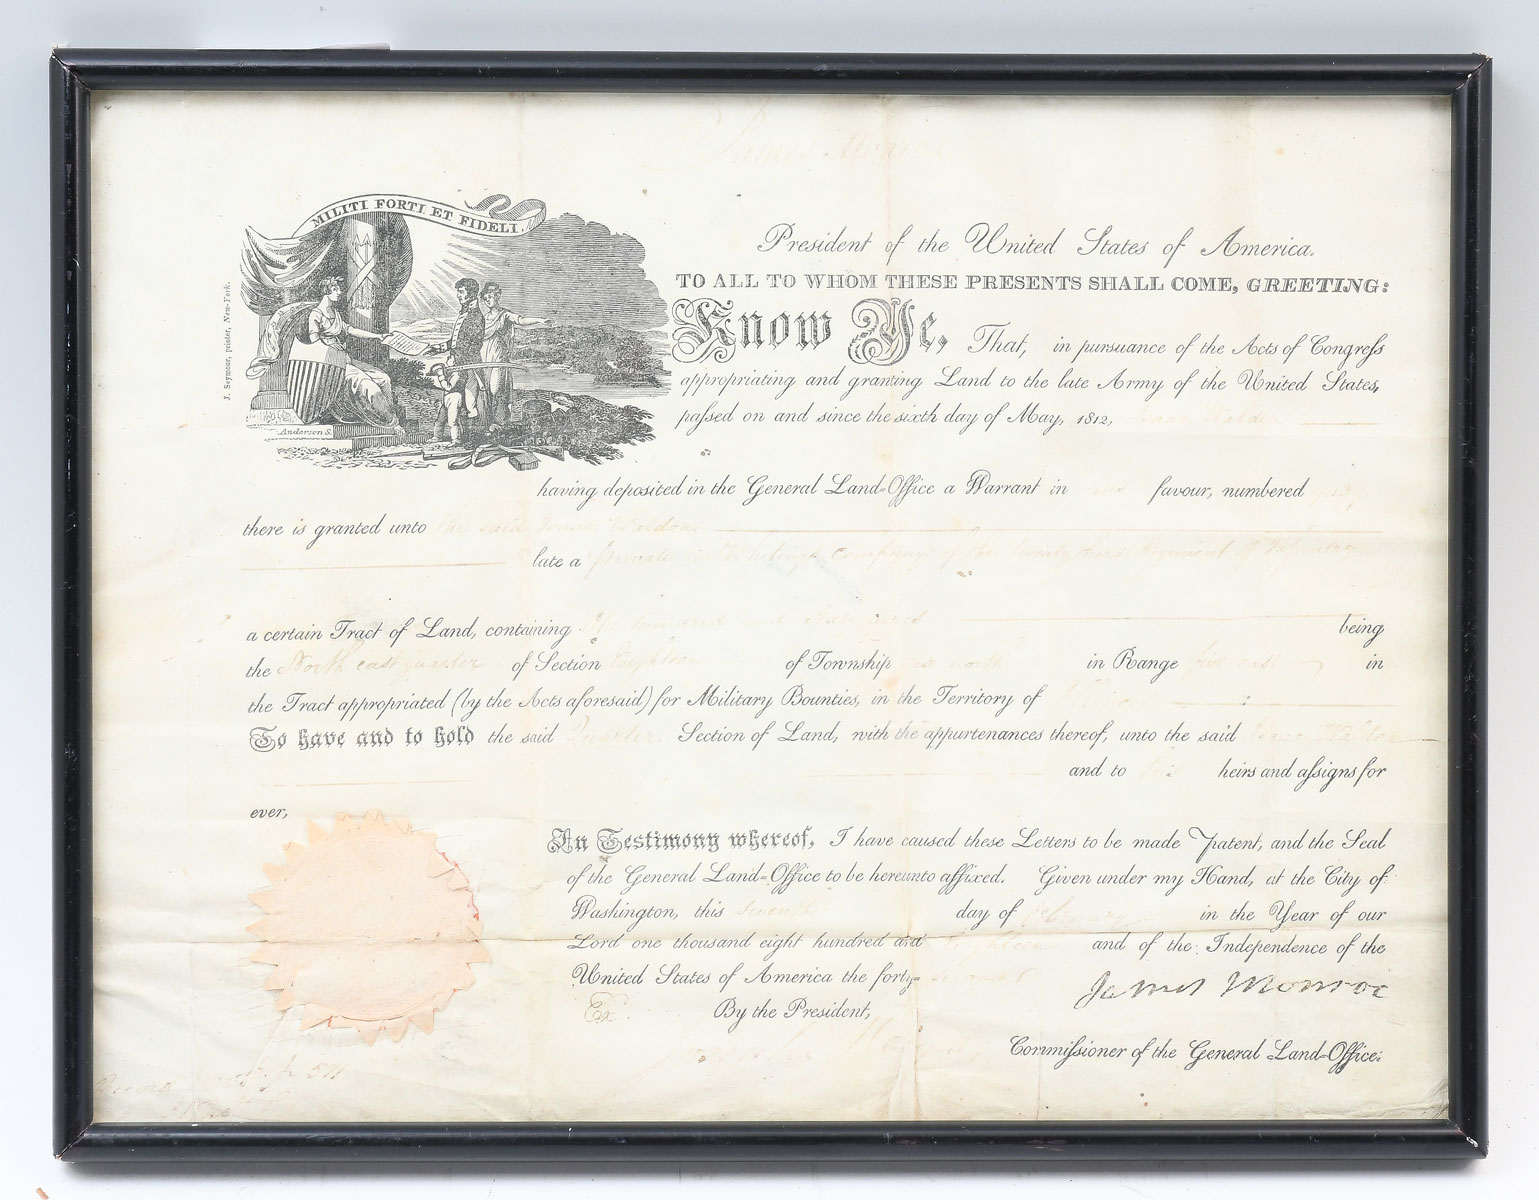 James Monroe
MILITI FORTI ET FIDELI.
J. Seymour, printer, New-York.
Anderson S.
President of the United States of America.
TO ALL TO WHOM THESE PRESENTS SHALL COME, GREETING:
Know Ye, That, in pursuance of the Acts of Congress
appropriating and granting Land to the late Army of the United States,
passed on and since the sixth day of May, 1812, Isaac Waldon
having deposited in the General Land-Office a Warrant in his favour, numbered
there is granted unto the said Isaac Waldon
late a private in Whiting's company of the twenty third Regiment of Infantry
a certain Tract of Land, containing One hundred and Sixty acres being
the North east quarter of Section Eighteen of Township six north in Range five east in
the Tract appropriated (by the Acts aforesaid) for Military Bounties, in the Territory of Illinois
To have and to hold the said Quarter Section of Land, with the appurtenances thereof, unto the said Isaac Waldon
and to his heirs and assigns for
ever,
In Testimony whereof, I have caused these Letters to be made Patent, and the Seal
of the General Land-Office to be hereunto affixed. Given under my Hand, at the City of
Washington, this seventh day of February in the Year of our
Lord one thousand eight hundred and Eighteen and of the Independence of the
United States of America the forty-second
James Monroe
Ex By the President,
Commissioner of the General Land-Office.